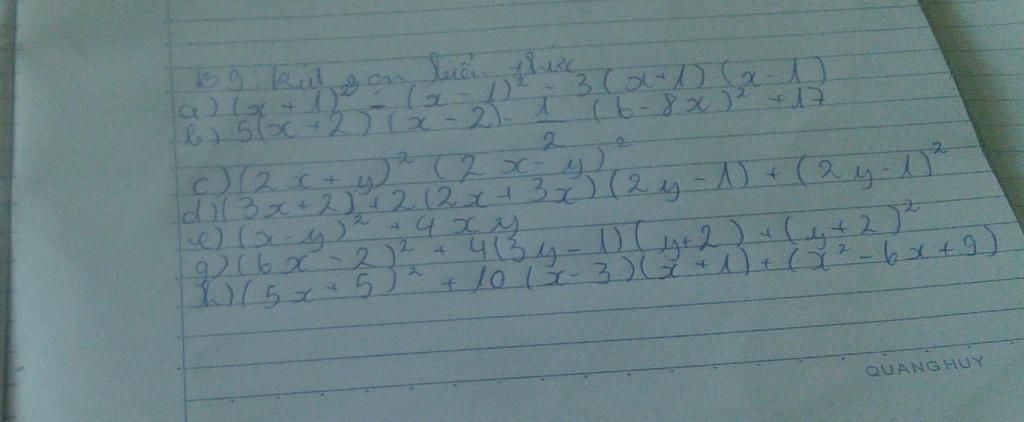 B9: Rút gọn biểu thức
a) (x+1)² - (x-1)² - 3(x+1)(x-1)
b) 5(x+2)(x-2) - 1/2 (6-8x)² + 17
c) (2x+y)² (2x-y)²
d) (3x+2)²+2(2x+3x)(2y-1)+(2y-1)²
e) (x-y)² + 4xy
g) (6x-2)² + 4(3y-1)(y+2)+(y+2)²
h) (5x+5)² +10(x-3)(x+1)+(x²-6x+9)
QUANG HUY